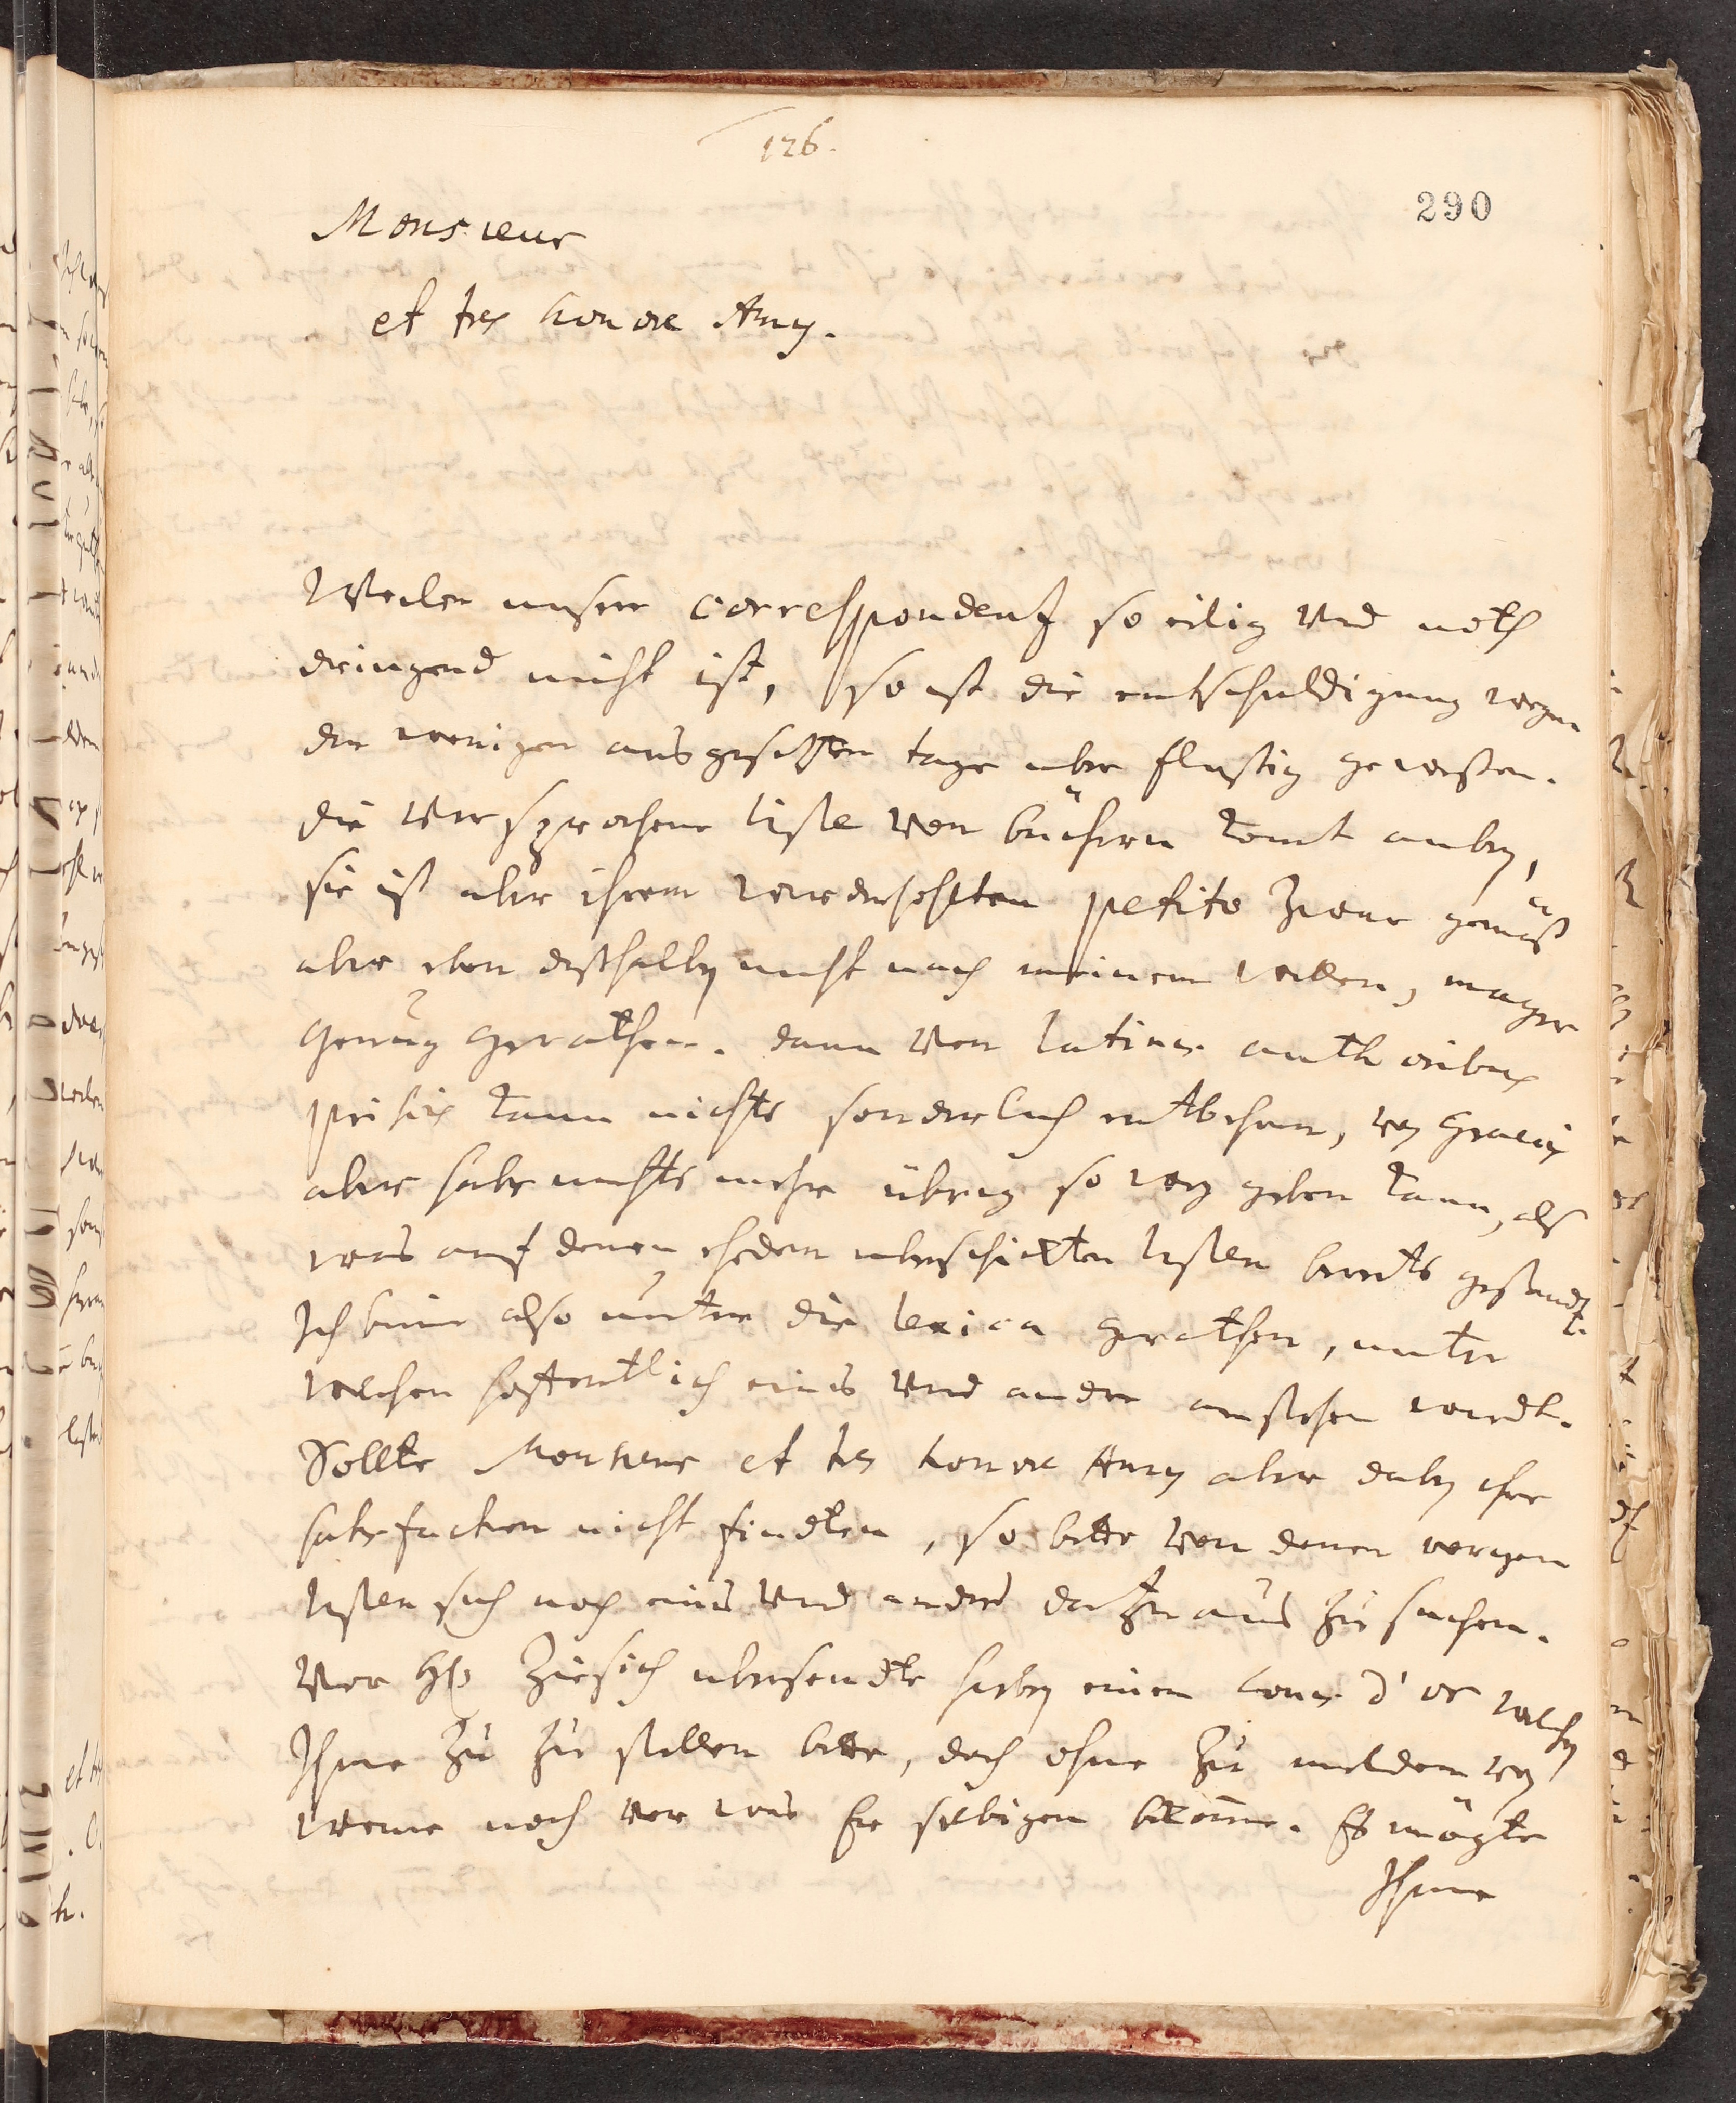 126.
290
Monsieur
et tres honore Amy.
Weilen unsere correspondentz so eilig vnd noth
dringend nicht ist, so ist die entschuldigung wegen
der wenigen ausgesetzten tage uber flussig gewessen.
die versprochene liste von büchern komt anbey,
sie ist aber ihrem wiederholten petito zwar gemäß
aber eben desthalben nicht nach meinem willen, mager
genug gerathen. dann von latinis authoribus
priscis kann nichts sonderlich entbehren, von graecis
aber habe nichts mehr übrig so weg geben kann, als
was auf denen ehedem uberschickten listen bereits gestandt.
Ich bin also unter die lexica gerathen, unter
welchen hoffentlich eines vnd andere anstehen wirdt.
Sollte Monsieur et tres honore Amy aber dabey ihre
satisfaction nicht findten, so bitte von denen vorigen
listen sich noch eines vnd anders dartzu aus zu suchen.
Vor H. Ziesich ubersendte hirbey einen Louis d'or welchen
Ihme zu zu stellen bitte, doch ohne zu melden von
weme noch vor was Er selbigen bekomme. Es mögte
Ihme